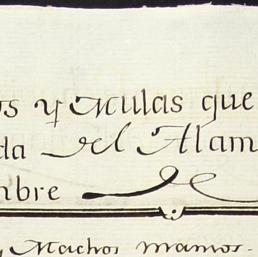 os y Mulas que
da del Alam
mbre de
y Machos mansos.